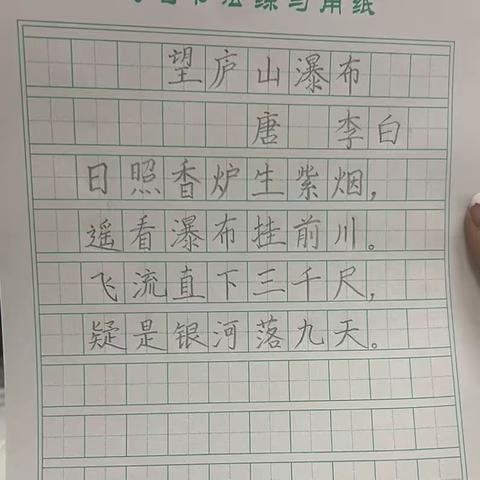 书法练习用纸
望庐山瀑布
唐 李白
日照香炉生紫烟，
遥看瀑布挂前川。
飞流直下三千尺，
疑是银河落九天。